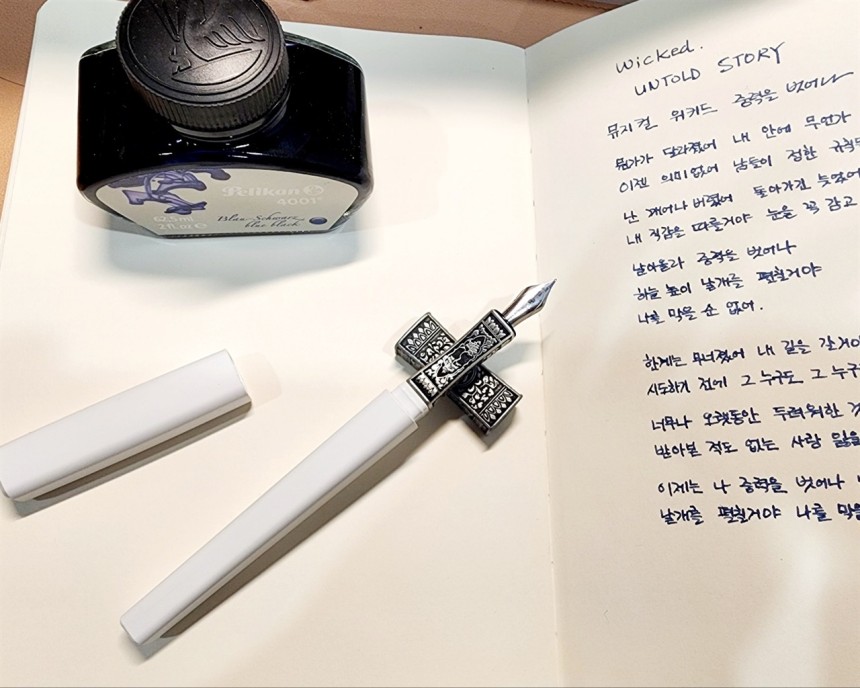 Pelikan
4001
62.5ml
2fl.oz
Blau-Schwarz
blue-black
Wicked.
UNTOLD STORY
뮤지컬 위키드 중력을 벗어나
뭔가가 달라졌어 내 안에 무언가
이젠 의미없어 남들이 정한 규칙
난 깨어나 버렸어 돌아가긴 늦었어
내 직감을 따를거야 눈을 꼭 감고
날아올라 중력을 벗어나
하늘 높이 날개를 펼칠거야
나를 막을 순 없어.
한계는 무너졌어 내 길을 갈거야
시도하기 전에 그 누구도 그 누구
너무나 오랫동안 두려워한 것
받아본 적도 없는 사랑 잃을
이제는 나 중력을 벗어나
날개를 펼칠거야 나를 막을